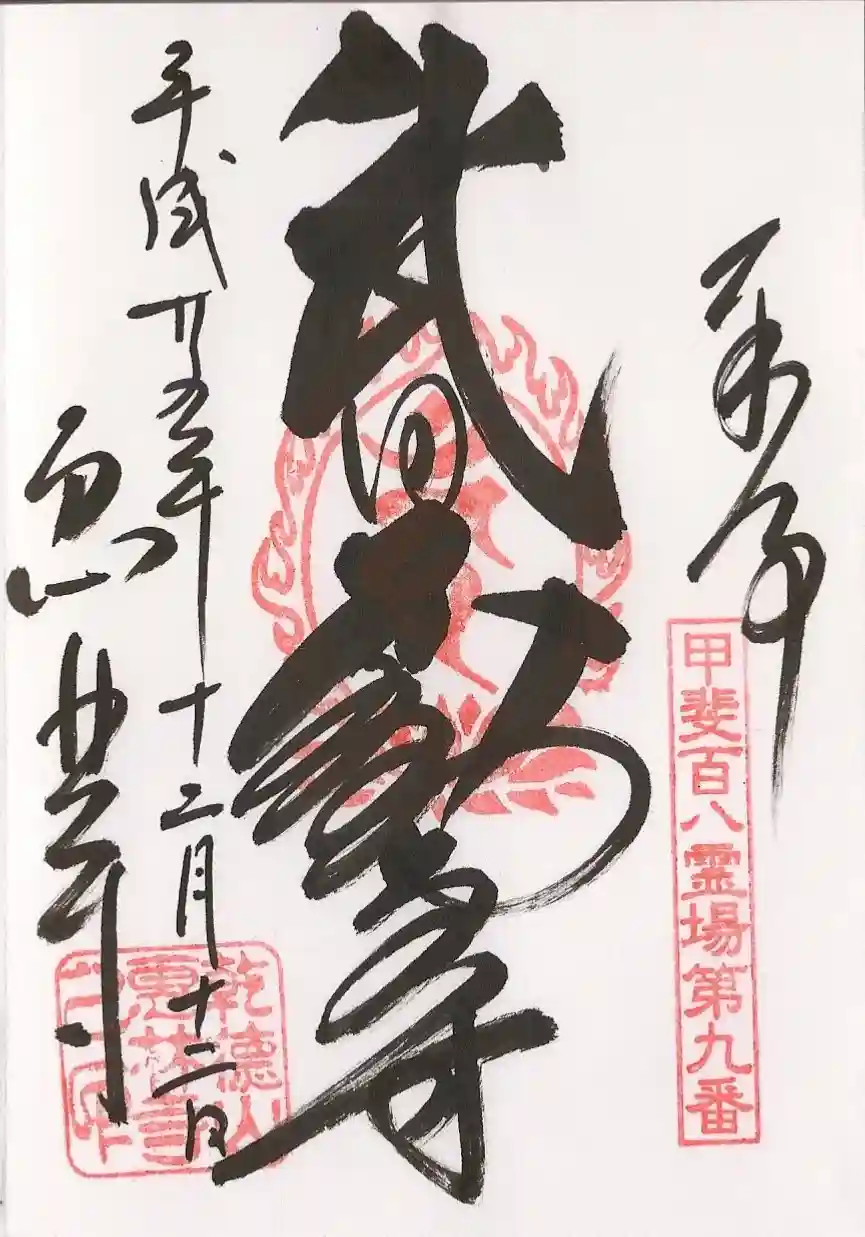 甲斐百八霊場第九番
武田不動尊
平成廿五年十二月十二日
恵林寺
乾徳山